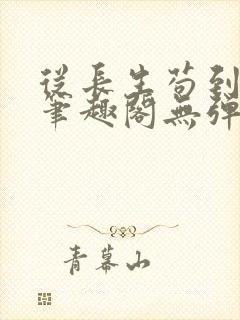 從長生苟到
筆趣閣無彈
青幕山